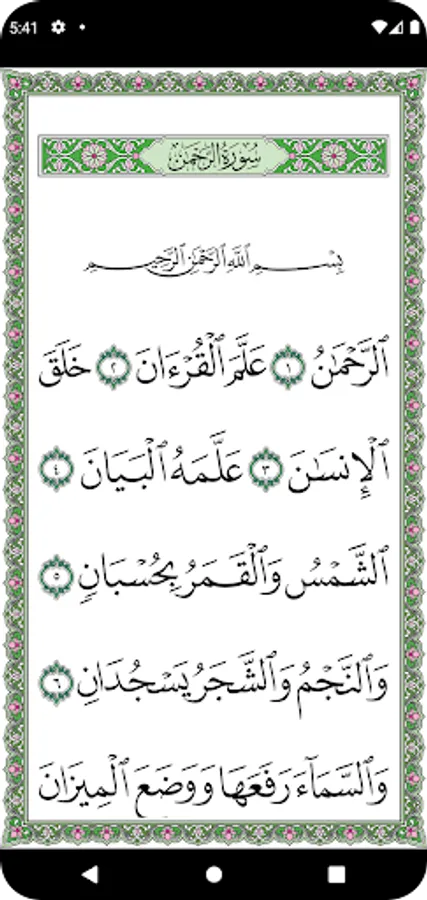 5:41
سُورَةُ الرَّحْمَٰن
بِسْمِ ٱللَّهِ ٱلرَّحْمَٰنِ ٱلرَّحِيمِ
ٱلرَّحْمَٰنُ ١ عَلَّمَ ٱلْقُرْءَانَ ٢ خَلَقَ
ٱلْإِنسَٰنَ ٣ عَلَّمَهُ ٱلْبَيَانَ ٤
ٱلشَّمْسُ وَٱلْقَمَرُ بِحُسْبَانٍ ٥
وَٱلنَّجْمُ وَٱلشَّجَرُ يَسْجُدَانِ ٦
وَٱلسَّمَآءَ رَفَعَهَا وَوَضَعَ ٱلْمِيزَانَ